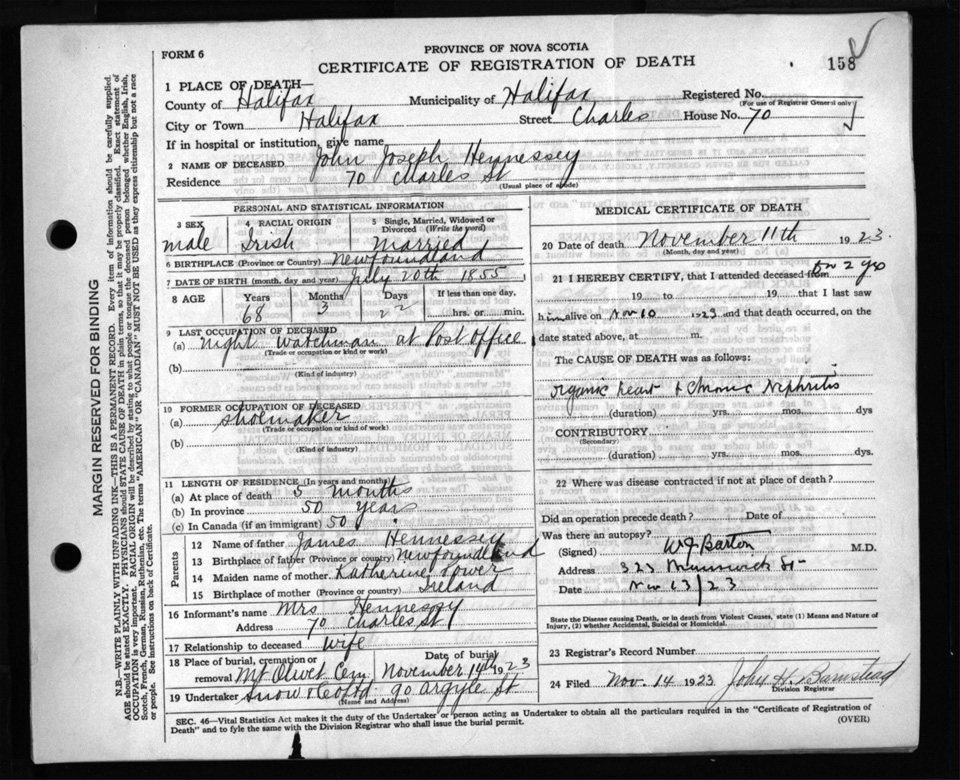 FORM 6
PROVINCE OF NOVA SCOTIA
CERTIFICATE OF REGISTRATION OF DEATH
158
1 PLACE OF DEATH—
County of Halifax Municipality of Halifax Registered No.
(For use of Registrar General only)
City or Town Halifax Street Charles House No. 70
If in hospital or institution, give name
2 NAME OF DECEASED John Joseph Hennessey
Residence 70 Charles St
(Usual place of abode)
PERSONAL AND STATISTICAL INFORMATION
3 SEX 4 RACIAL ORIGIN 5 Single, Married, Widowed or Divorced (Write the word)
male Irish Married
6 BIRTHPLACE (Province or Country) Newfoundland
7 DATE OF BIRTH (month, day and year) July 20th 1855
8 AGE Years Months Days If less than one day,
68 3 22 hrs. or min.
9 LAST OCCUPATION OF DECEASED
(a) night watchman at Post Office
(Trade or occupation or kind or work)
(b)
(Kind of industry)
10 FORMER OCCUPATION OF DECEASED
(a) Shoemaker
(Trade or occupation or kind of work)
(b)
(Kind of industry)
11 LENGTH OF RESIDENCE (In years and months)
(a) At place of death 5 months
(b) In province 50 years
(c) In Canada (if an immigrant) 50
Parents
12 Name of father James Hennessey
13 Birthplace of father (Province or country) Newfoundland
14 Maiden name of mother Katherine Power
15 Birthplace of mother (Province or country) Ireland
16 Informant's name Mrs Hennessy
Address 70 Charles St
17 Relationship to deceased Wife
18 Place of burial, cremation or removal Mt Olivet Cem Date of burial November 14th 1923
19 Undertaker Snow & Co Ltd 90 Argyle St
(Name and Address)
MEDICAL CERTIFICATE OF DEATH
20 Date of death November 11th 1923.
(Month, day and year)
21 I HEREBY CERTIFY, that I attended deceased from for 2 yrs
19 to 19 that I last saw
him alive on Nov 10 1923 and that death occurred, on the
date stated above, at m.
The CAUSE OF DEATH was as follows:
organic heart & Chronic Nephritis
(duration) yrs. mos. dys
CONTRIBUTORY
(Secondary)
(duration) yrs. mos. dys.
22 Where was disease contracted if not at place of death?
Did an operation precede death? Date of
Was there an autopsy?
(Signed) W J Barton M.D.
Address 323 Brunswick St
Date Nov 13/23
State the Disease causing Death, or in death from Violent Causes, state (1) Means and Nature of Injury, (2) whether Accidental, Suicidal or Homicidal.
23 Registrar's Record Number
24 Filed Nov. 14 1923 John H. Barnstead
Division Registrar
SEC. 46—Vital Statistics Act makes it the duty of the Undertaker or person acting as Undertaker to obtain all the particulars required in the "Certificate of Registration of
Death" and to fyle the same with the Division Registrar who shall issue the burial permit.
(OVER)
MARGIN RESERVED FOR BINDING
N.B.—WRITE PLAINLY WITH UNFADING INK—THIS IS A PERMANENT RECORD. Every item of information should be carefully supplied.
AGE should be stated EXACTLY. PHYSICIANS should STATE CAUSE OF DEATH in plain terms, so that it may be properly classified. Exact statement of
OCCUPATION is very important. RACIAL ORIGIN will be described by stating to what people or tongue the deceased person belonged whether English, Irish,
Scotch, French, German, Russian, Ruthenian, etc. The terms "AMERICAN" OR "CANADIAN" MUST NOT BE USED as they express citizenship but not a race
or people. See instructions on back of Certificate.